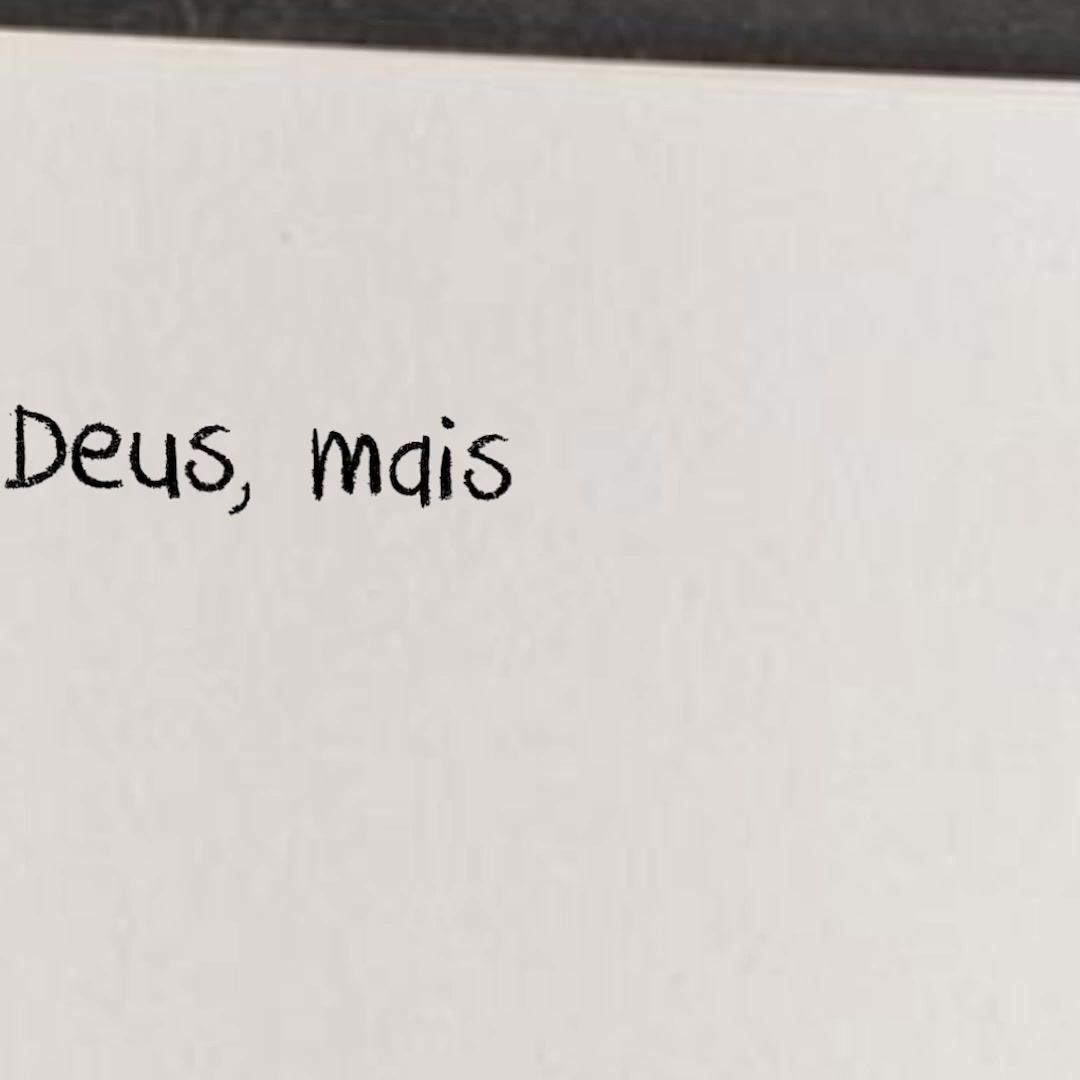 Deus, mais